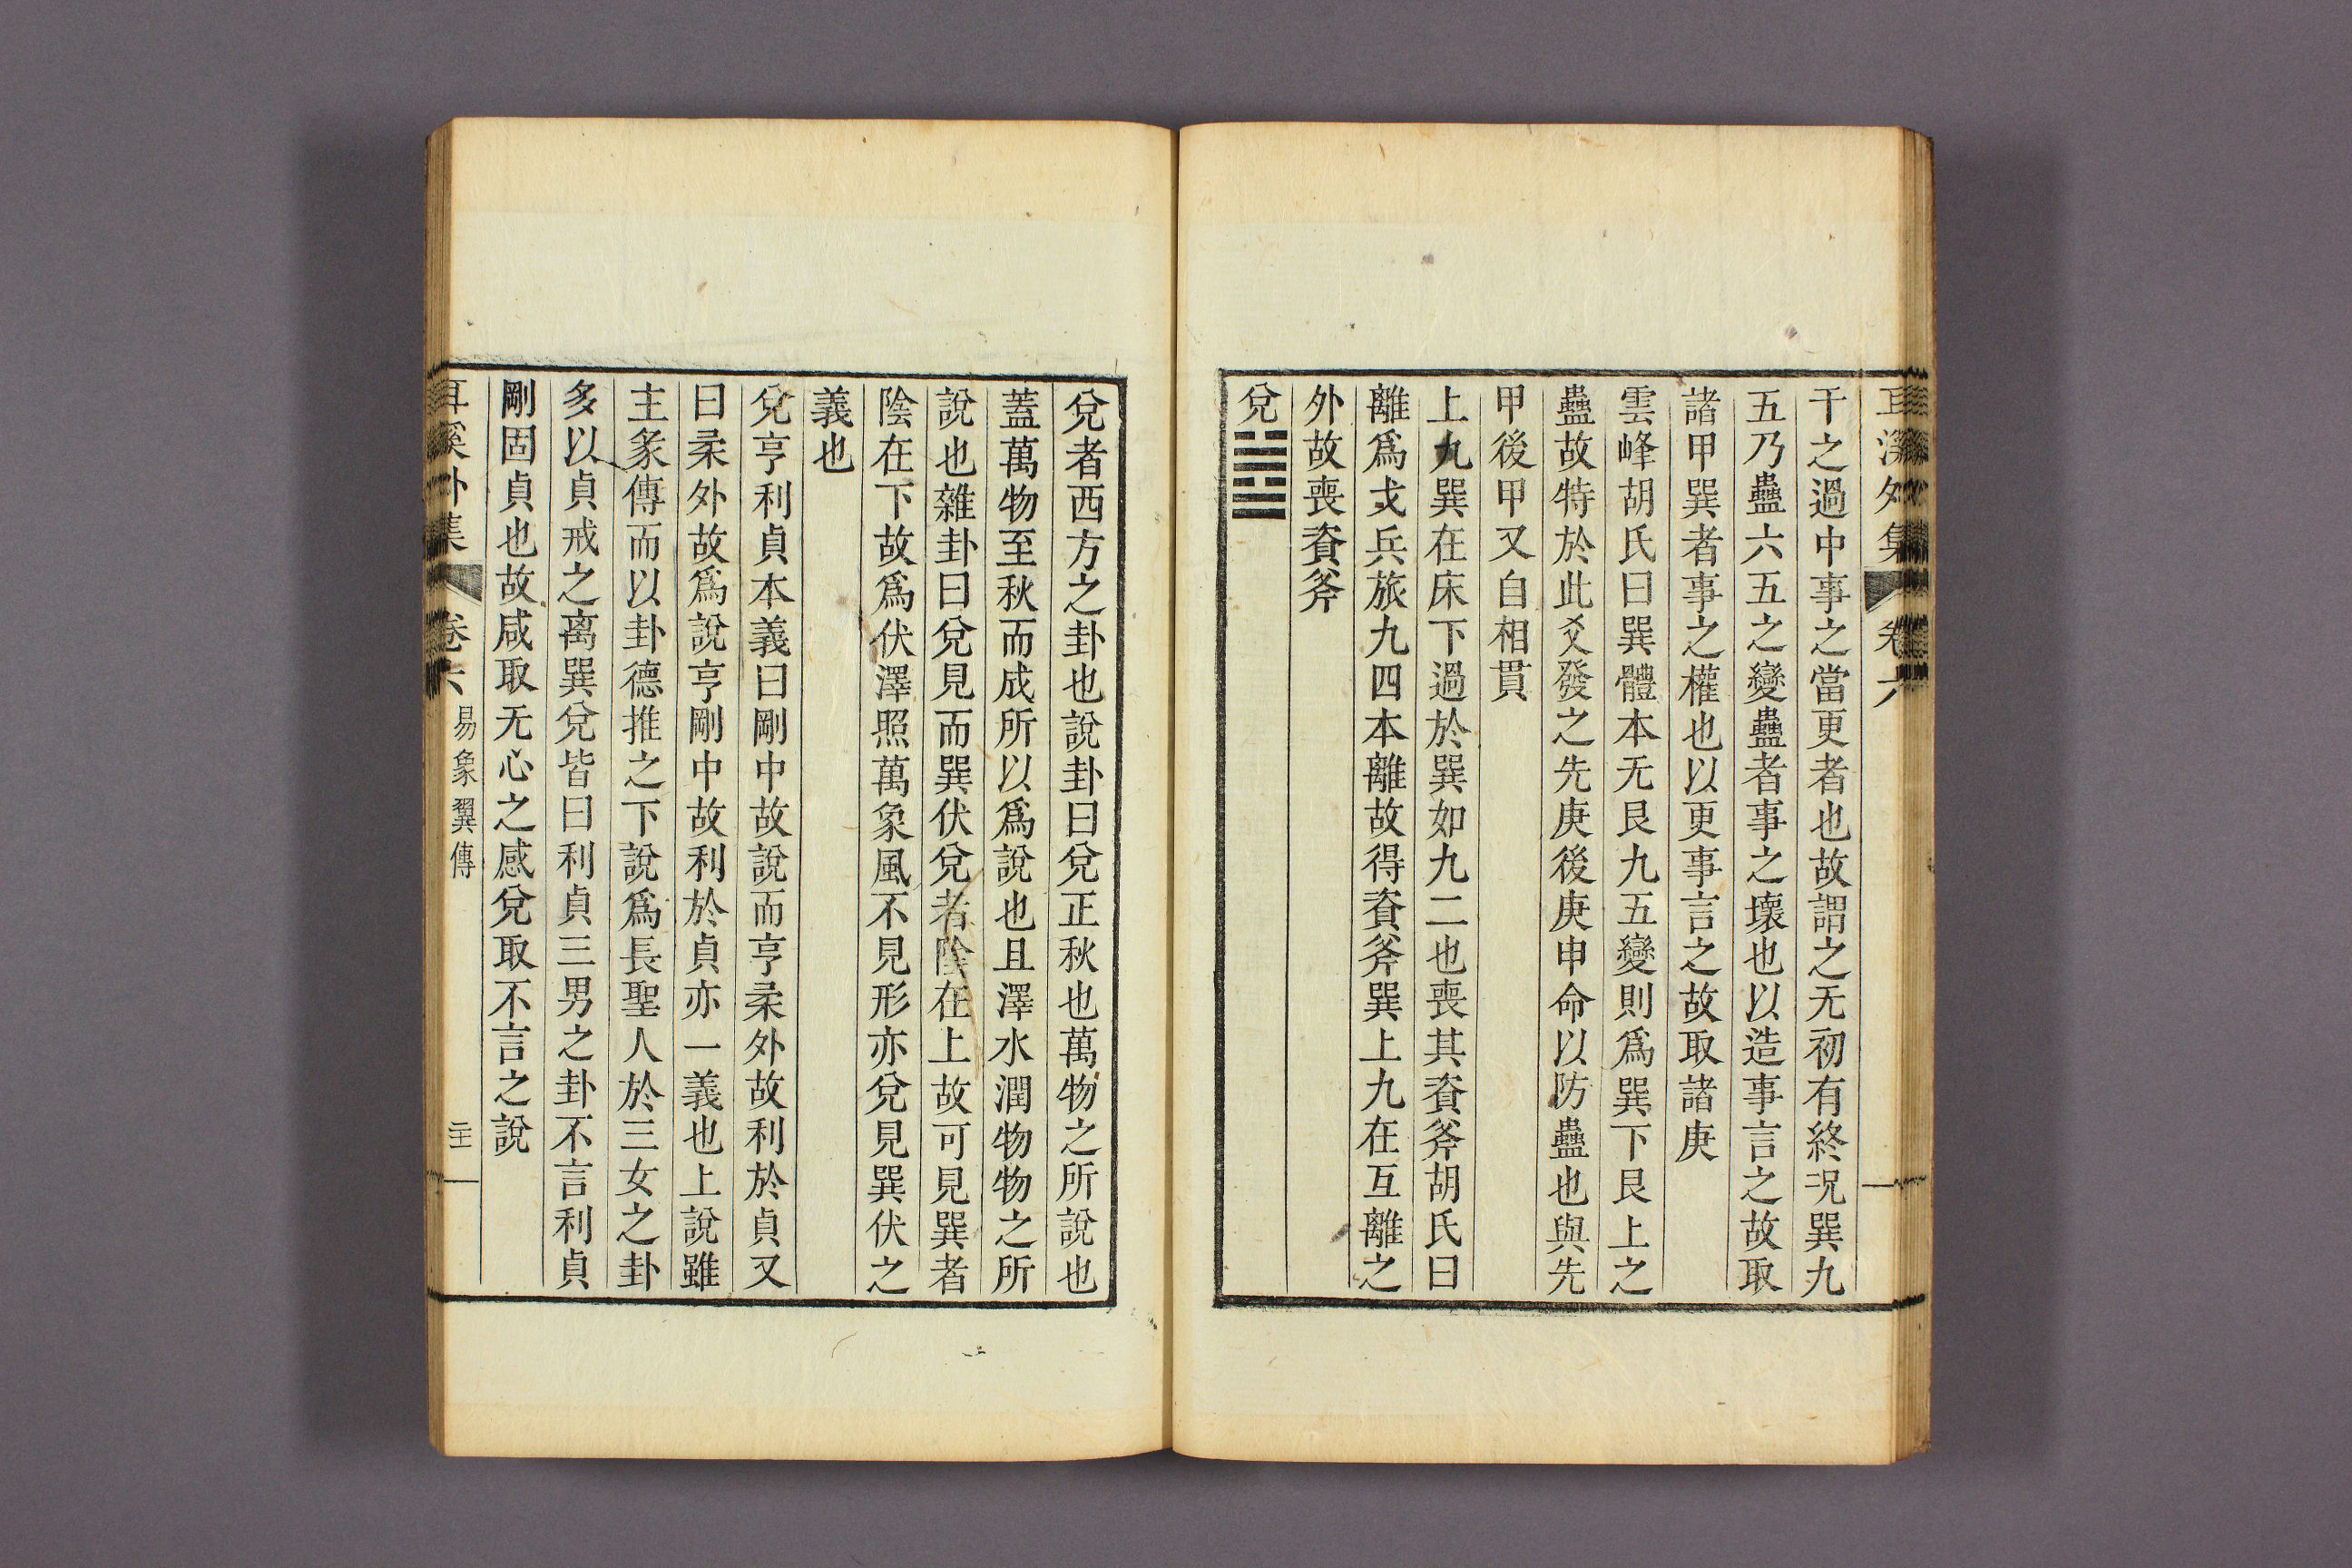 耳溪外集 卷六
干之過中事之當更者也故謂之无初有終況巽九
五乃蠱六五之變蠱者事之壞也以造事言之故取
諸甲巽者事之權也以更事言之故取諸庚
雲峰胡氏曰巽體本无艮九五變則爲巽下艮上之
蠱故特於此爻發之先庚後庚申命以防蠱也與先
甲後甲又自相貫
上九巽在床下過於巽如九二也喪其資斧胡氏曰
離爲戈兵旅九四本離故得資斧巽上九在互離之
外故喪資斧
兌䷹
兌者西方之卦也說卦曰兌正秋也萬物之所說也
蓋萬物至秋而成所以爲說也且澤水潤物物之所
說也雜卦曰兌見而巽伏兌者陰在上故可見巽者
陰在下故爲伏澤照萬象風不見形亦兌見巽伏之
義也
兌亨利貞本義曰剛中故說而亨柔外故利於貞又
曰柔外故爲說亨剛中故利於貞亦一義也上說雖
主彖傳而以卦德推之下說爲長聖人於三女之卦
多以貞戒之离巽兌皆曰利貞三男之卦不言利貞
剛固貞也故咸取无心之感兌取不言之說
耳溪外集 卷六 易象翼傳